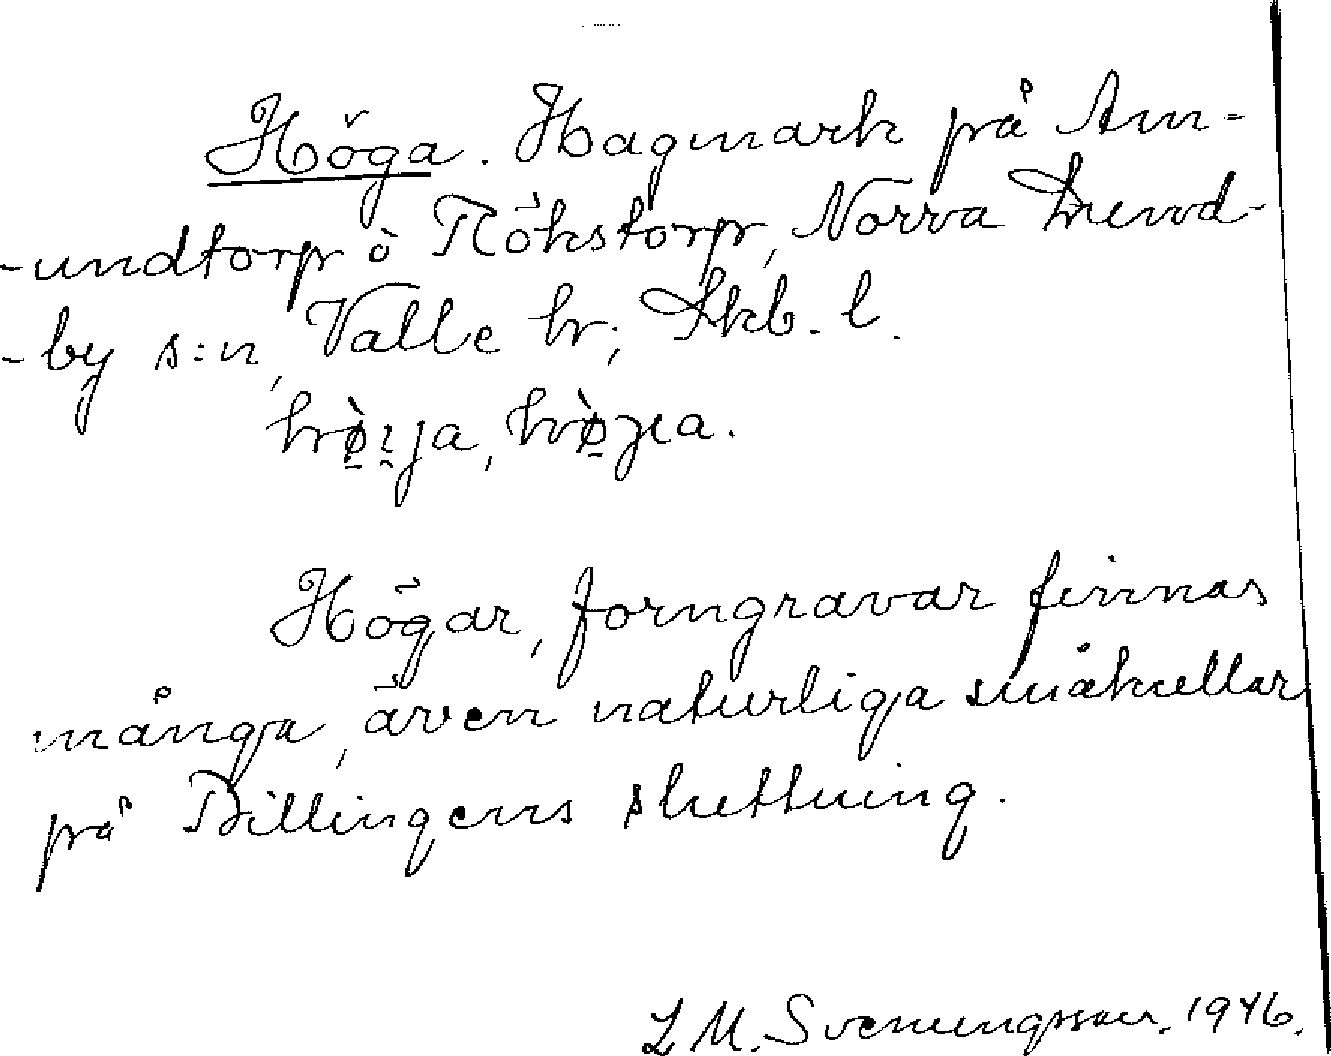 Höga. Hagmark på Am-
-undtorp ö Rökstorp, Norra Lund-
-by s:n, Valle hr; Skb. l.
Högar, forngravar finnas
många, även naturliga småkullar
på Billingens sluttning.
L M. Svenungsson. 1946.